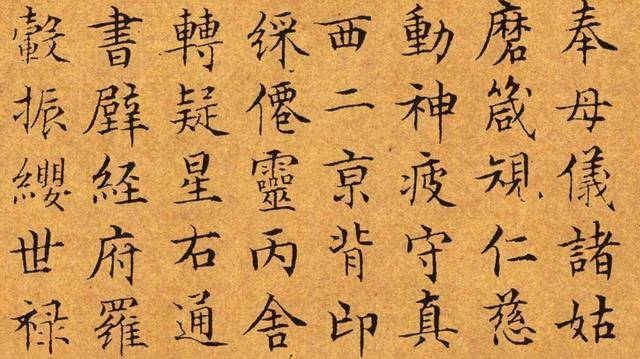 奉母儀諸姑
磨箴規仁慈
動神疲守真
西二亰背邙
綵僊靈丙舍
轉疑星右通
書壁経府羅
轂振纓世禄